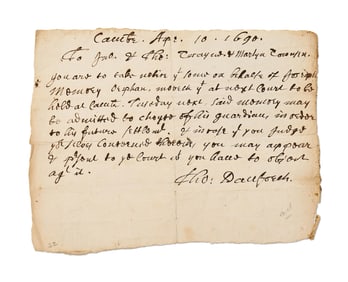 Camb. Apr. 10. 1690.
To Jno. & Tho:
you are to take notice yt some on behalfe of Joseph
Memory Orphan, moveth yt at next Court to be
held at Camb. Tuesday next, said Memory may
be admitted to choyce of his guardians, in order
to his future settlemt. & in case you Judge
concerned therein, you may appear
at ye Court if you have to object
agt it.
Tho: Danforth.